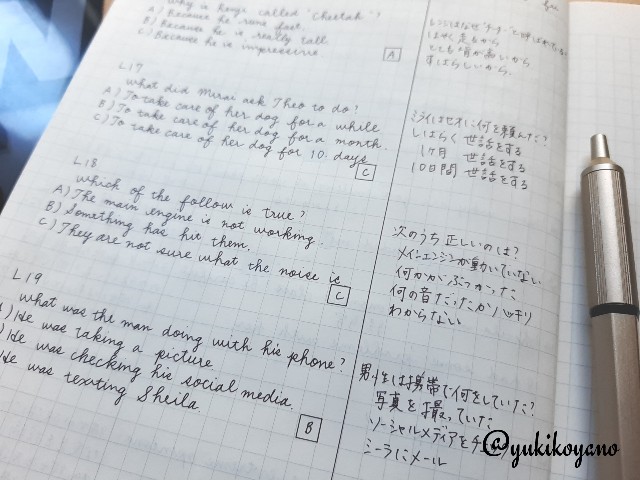 Why is Kenji called "Cheetah"?
A) Because he runs fast.
B) Because he is really tall.
C) Because he is impressive.
A
とても背が高いから
すばらしいから。
L17
What did Mirai ask Theo to do?
A) To take care of her dog for a while.
B) To take care of her dog for a month.
C) To take care of her dog for 10 days
C
ミライはセオに何を頼んだ?
しばらく 世話をする
1ヶ月 世話をする
10日間 世話をする
L18
Which of the follow is true?
A) The main engine is not working.
B) Something has hit them.
C) They are not sure what the noise is
C
次のうち正しいのは?
メインエンジンが動いていない
何かがぶつかった
何の音だったかハッキリ
わからない
L19
What was the man doing with his phone?
) He was taking a picture.
) He was checking his social media.
He was texting Sheila.
B
男性は携帯で何をしていた?
写真を撮っていた
ソーシャルメディアをチ
シーラにメール
@yukikoyano